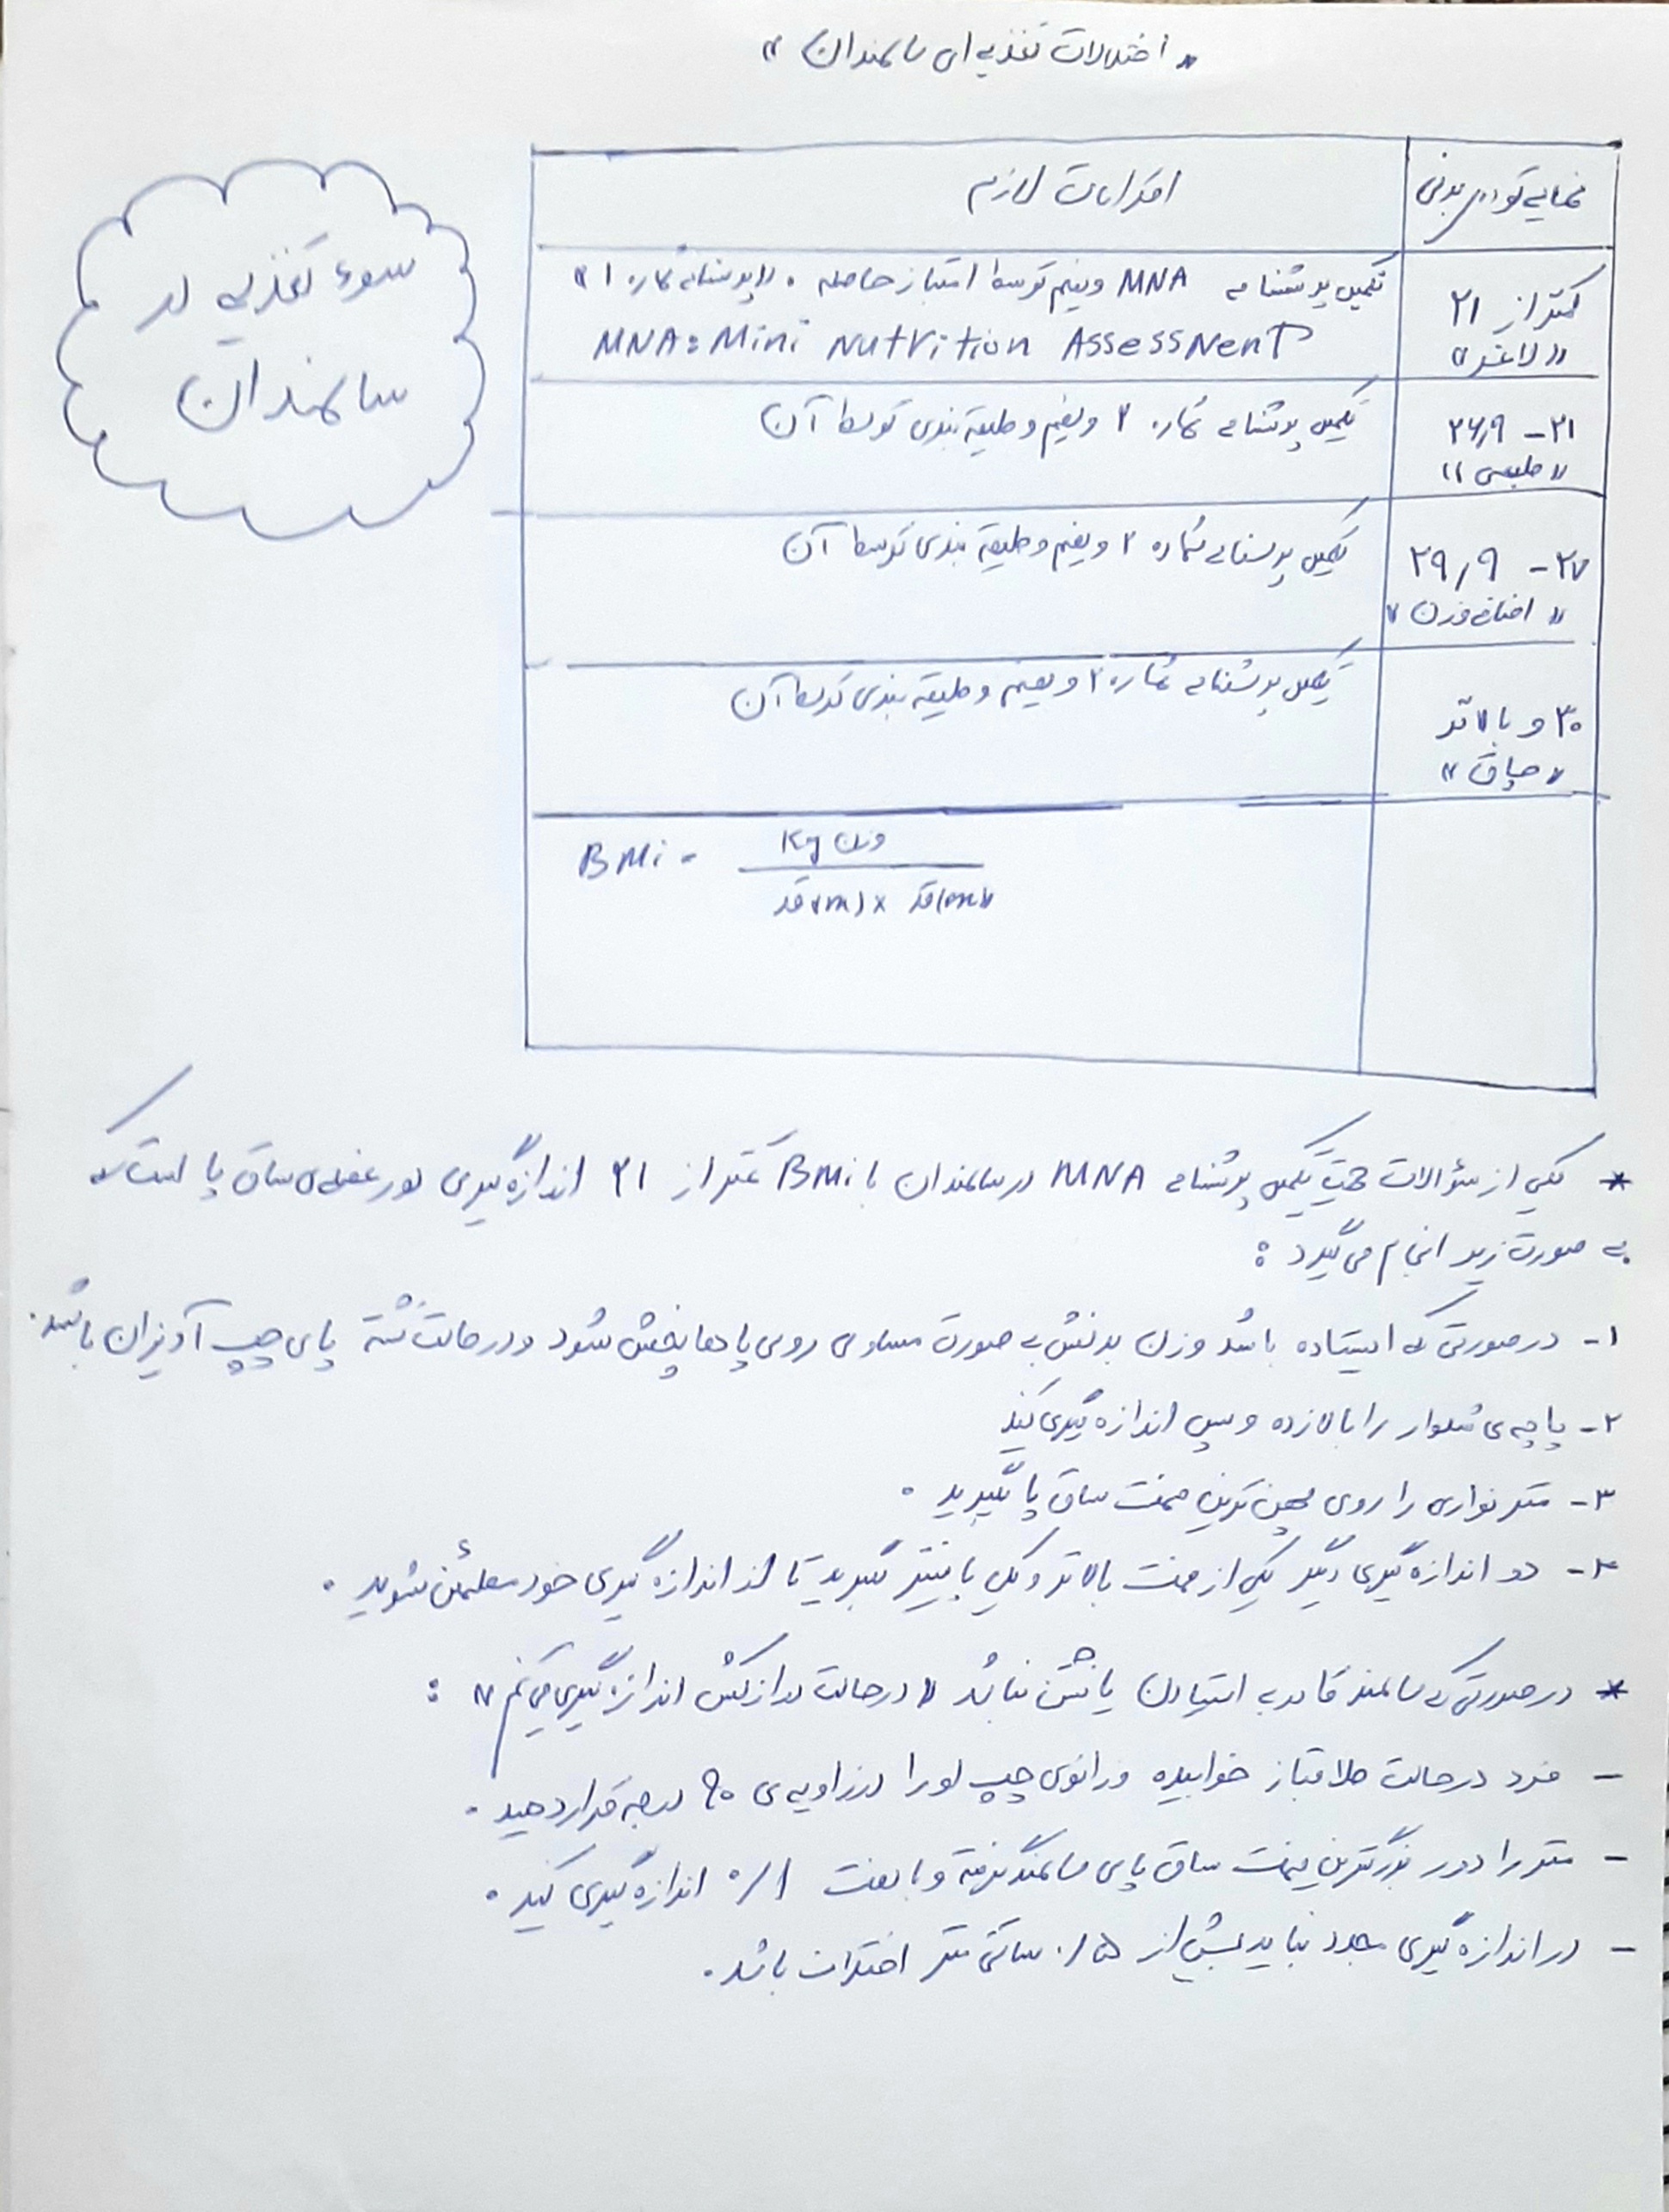 « اختلالات تغذیه ای سالمندان »
سوء تغذیه در
سالمندان
نمایه توده بدنی
اقدامات لازم
کمتر از ۲۱
« لاغر »
تکمیل پرسشنامه MNA و تصمیم توسط امتیاز حاصله . « پرسشنامه شماره ۱ »
MNA: Mini Nutrition AssessNenT
۲۱ - ۲۶٫۹
« طبیعی »
تکمیل پرسشنامه شماره ۲ و تصمیم و طبقه بندی توسط آن
۲۷ - ۲۹٫۹
« اضافه وزن »
تکمیل پرسشنامه شماره ۲ و تصمیم و طبقه بندی توسط آن
۳۰ و بالاتر
« چاق »
تکمیل پرسشنامه شماره ۲ و تصمیم و طبقه بندی توسط آن
BMi = وزن Kg
قد (m) × قد (m)
* یکی از سؤالات جهت تکمیل پرسشنامه MNA در سالمندان با BMi کمتر از ۲۱ اندازه گیری دور عضله ی ساق پا است که
به صورت زیر انجام می گیرد :
۱- در صورتی که ایستاده باشد وزن بدنش به صورت مساوی روی پاها پخش شود و در حالت نشسته پای چپ آویزان باشد.
۲- پاچه ی شلوار را بالا زده و سپس اندازه گیری کنید
۳- متر نواری را روی پهن ترین قسمت ساق پا بگیرید .
۴- دو اندازه گیری دیگر یکی از قسمت بالاتر و یکی پایینتر بگیرید تا از اندازه گیری خود مطمئن شوید .
* در صورتی که سالمند قادر به ایستادن یا نشستن نباشد « در حالت درازکش اندازه گیری می کنیم » :
- فرد در حالت طاقباز خوابیده و زانوی چپ او را در زاویه ی ۹۰ درجه قرار دهید .
- متر را دور بزرگترین قسمت ساق پای سالمند گرفته و با دقت ۰/۱ اندازه گیری کنید .
- در اندازه گیری مجدد نباید بیش از ۰/۵ سانتی متر اختلاف باشد .